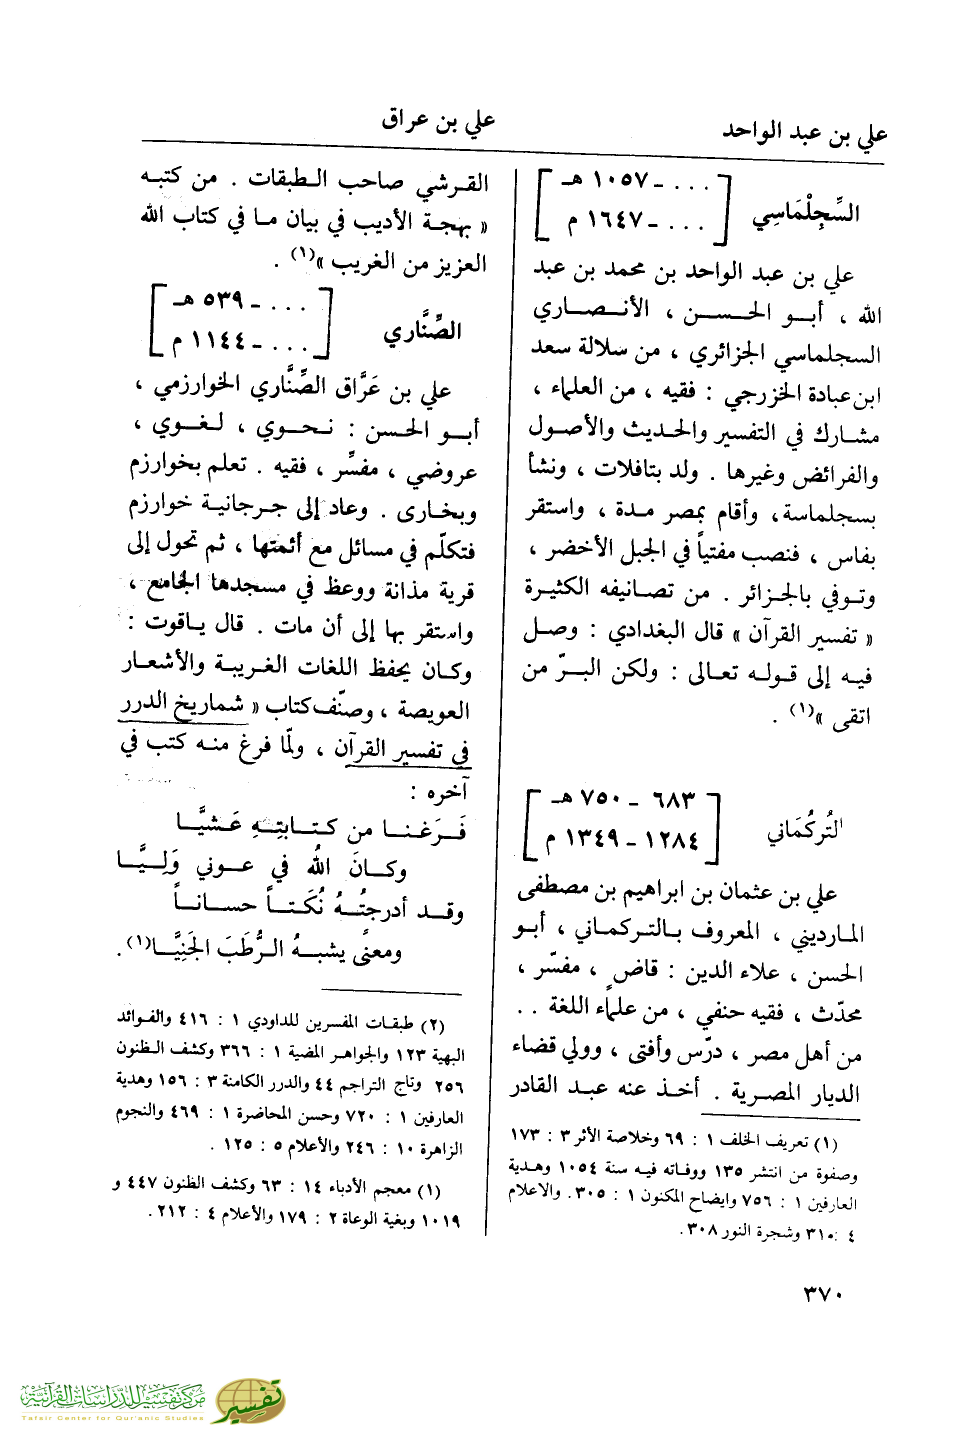 علي بن عبد الواحد
علي بن عراق
السِّجِلْمَاسِي
... - ١٠٥٧ هـ
... - ١٦٤٧ م
علي بن عبد الواحد بن محمد بن عبد
الله ، أبو الحسن ، الأنصاري
السجلماسي الجزائري ، من سلالة سعد
ابن عبادة الخزرجي : فقيه ، من العلماء ،
مشارك في التفسير والحديث والأصول
والفرائض وغيرها . ولد بتافلات ، ونشأ
بسجلماسة، وأقام بمصر مدة ، واستقر
بفاس ، فنصب مفتياً في الجبل الأخضر ،
وتوفي بالجزائر . من تصانيفه الكثيرة
« تفسير القرآن » قال البغدادي : وصل
فيه إلى قوله تعالى : ولكن البرّ من
اتقى »(١) .
التُركُمَاني
٦٨٣ - ٧٥٠ هـ
١٢٨٤ - ١٣٤٩ م
علي بن عثمان بن ابراهيم بن مصطفى
المارديني ، المعروف بالتركماني ، أبو
الحسن ، علاء الدين : قاضٍ ، مفسّر ،
محدّث ، فقيه حنفي ، من علماء اللغة ..
من أهل مصر ، درّس وأفتى ، وولي قضاء
الديار المصرية . أخذ عنه عبد القادر
(١) تعريف الخلف ١ : ٦٩ وخلاصة الأثر ٣ : ١٧٣
وصفوة من انتشر ١٣٥ ووفاته فيه سنة ١٠٥٤ وهدية
العارفين ١ : ٧٥٦ وايضاح المكنون ١ : ٣٠٥. والاعلام
٤ :٣١٠ وشجرة النور ٣٠٨.
القرشي صاحب الطبقات . من كتبه
« بهجة الأديب في بيان ما في كتاب الله
العزيز من الغريب »(١) .
الصِّنَّاري
... - ٥٣٩ هـ
... - ١١٤٤ م
علي بن عَرَّاق الصِّنَّاري الخوارزمي ،
أبو الحسن : نحوي ، لغوي ،
عروضي ، مفسِّر ، فقيه . تعلم بخوارزم
وبخارى . وعاد إلى جرجانية خوارزم
فتكلّم في مسائل مع أئمتها ، ثم تحول إلى
قرية مذانة ووعظ في مسجدها الجامع ،
واستقر بها إلى أن مات . قال ياقوت :
وكان يحفظ اللغات الغريبة والأشعار
العويصة ، وصنّف كتاب « شماريخ الدرر
في تفسير القرآن ، ولمّا فرغ منه كتب في
آخره :
فَرَغنا من كتابتِهِ عَشيَّا
وكانَ اللهُ في عوني وَليَّا
وقد أدرجتُهُ نُكَتاً حساناً
ومعنىً يشبهُ الرُّطَبَ الجَنِيَّا(١).
(٢) طبقات المفسرين للداودي ١ : ٤١٦ والفوائد
البهية ١٢٣ والجواهر المضية ١ : ٣٦٦ وكشف الظنون
٢٥٦ وتاج التراجم ٤٤ والدرر الكامنة ٣ : ١٥٦ وهدية
العارفين ١ : ٧٢٠ وحسن المحاضرة ١ : ٤٦٩ والنجوم
الزاهرة ١٠ : ٢٤٦ والأعلام ٥ : ١٢٥ .
(١) معجم الأدباء ١٤ : ٦٣ وكشف الظنون ٤٤٧ و
١٠١٩ وبغية الوعاة ٢ : ١٧٩ والأعلام ٤ : ٢١٢.
٣٧٠
مركز تفسير للدراسات القرآنية
Tafsir Center for Qur'anic Studies
تفسير